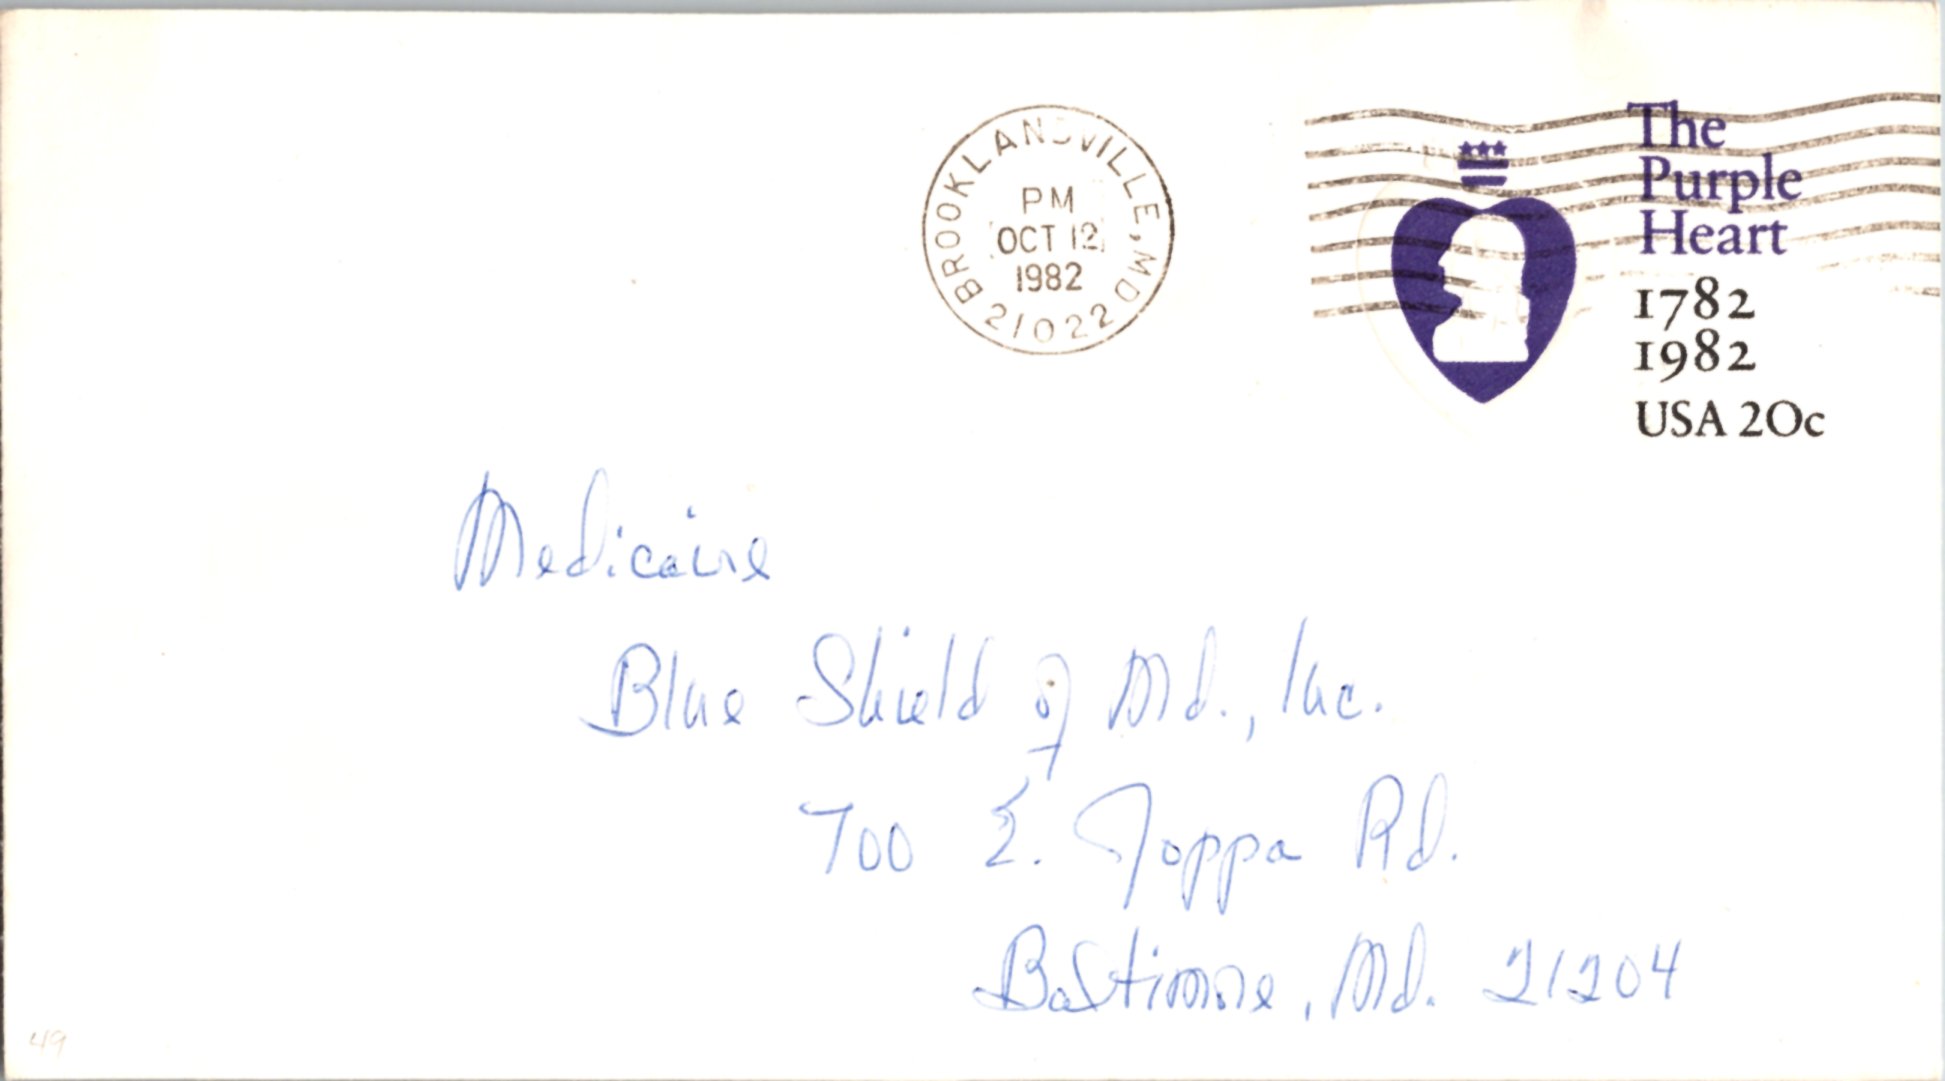 BROOKLANDVILLE, MD
PM
OCT 12
1982
21022
The
Purple
Heart
1782
1982
USA 20c
Medicaire
Blue Shield of Md., Inc.
700 E. Joppa Rd.
Baltimore, Md. 21204
49